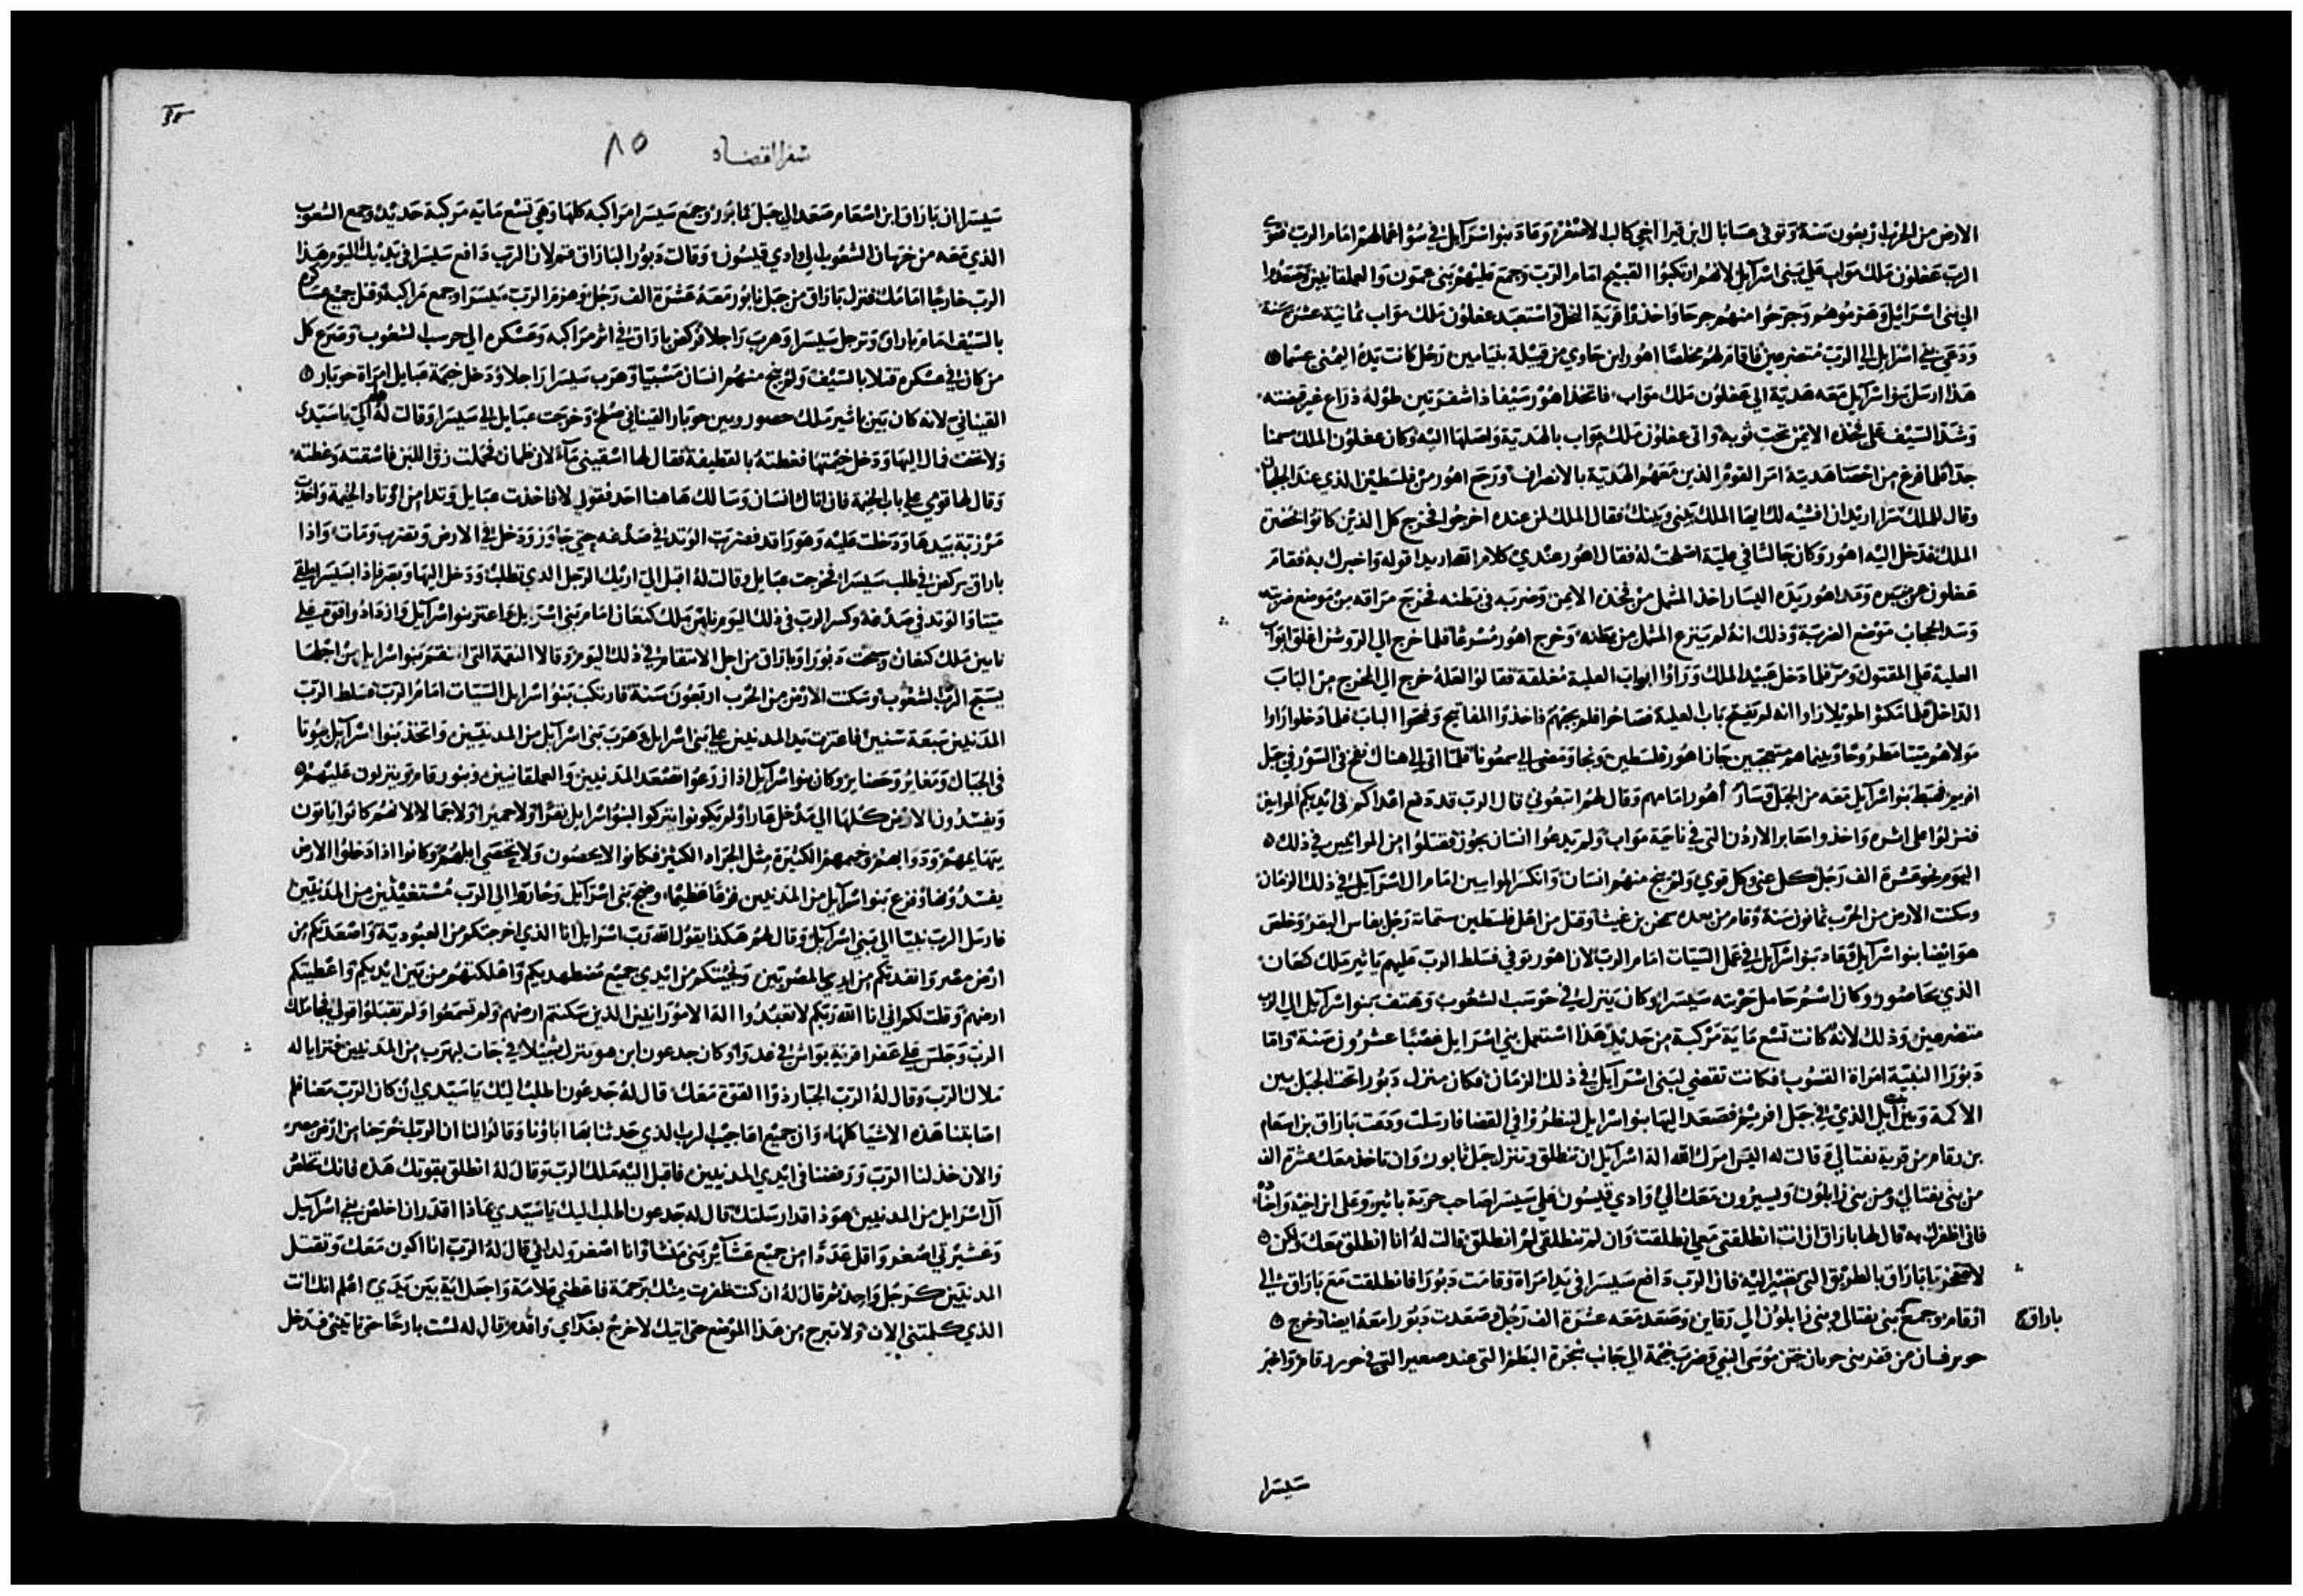 الارض من الحرب اربعون سنة وتوفي عسانايال ابن قيرا اخي كالب الاصغر وعاد بنو اسرآيل في سوا اعمالهم امام الرب فقوي
الرب عغلون ملك مواب على بني اسرآيل لانهم ارتكبوا القبيح امام الرب وجمع عليهم بني عمون والعملقانيين وصعدوا
الي بني اسرائيل وهزموهم وجرحوا منهم جرحا واخذوا قرية النخل واستعبد عغلون ملك مواب ثمانية عشرة سنة
ودعي بني اسرايل الي الرب متضرعين فاقام لهم مخلصا اهور ابن جاري من قبيلة بنيامين رجل كانت يده اليمني عسما
هذا ارسل بنو اسرآيل معه هدية الي عغلون ملك مواب فاتخذ اهور سيفا ذا شفرتين طوله ذراع غير قبضته
وشد السيف على فخذه الايمن تحت ثوبه واتي عغلون ملك مواب بالهدية واصلها اليه وكان عغلون الملك سمنا
جدا فلما فرغ من احصا هدية امر القوم الذين معهم الهدية بالانصراف ورجع اهور من فلسطين الذي عند الجلجال
وقال للملك سرا اريد ان افشيه لك ايها الملك بيني وبينك فقال الملك لمن عنده اخرجوا فخرج كل الذين كانوا بحضرة
الملك فدخل اليه اهور وكان جالسا في علية اصلحت له فقال اهور عندي كلام اقصاد بيدا قوله واخبرك به فقام
عغلون عن منبره ومد اهور يده اليسار اخذ المثمل من فخذه الايمن وضربه في بطنه فخرج مراقه من موضع ضربته
وسد الحجاب موضع الضربة وذلك انه لم ينزع المثمل من بطنه وخرج اهور مسرعا فلما خرج الي الروشن اغلق ابواب
العلية على المقتول ومر فلما دخل عبيد الملك وراوا ابواب العلية مغلقة فقالوا لعله خرج الي المخرج من الباب
الداخل فلما مكثوا طويلا راوا انه لم يفتح باب العلية فصاحوا فلم يجبهم فاخذوا المفاتيح وفتحوا الباب فلما دخلوا راوا
مولاهم ميتا مطروحا وبينما هم متعجبين جاز اهور فلسطين ونجا ومضى الي سعونا فلما اتي الي هناك نفخ في السور في جبل
افريم فهبط بنو اسرآيل معه من الجبل وسار اهور امامهم وقال لهم اتبعوني قال الرب قد دفع اعداكم في ايديكم الموابيين
فنزلوا على اثره واخذوا معابر الاردن التي في ناحية مواب ولم يدعوا انسان يجوز فقتلوا من الموابيين في ذلك
اليوم نحو عشرة الف رجل كل غني وكل قوي ولم ينج منهم انسان وانكسر الموابيين امام ال اسرآيل في ذلك الزمان
وسكنت الارض من الحرب ثمانون سنة وقام من بعده سحزن بن غيشا وقتل من اهل فلسطين ستماية رجل بفاس البقر وخلص
هو ايضا بنو اسرآيل وعاد بنو اسرآيل في عمل السيات امام الرب لان اهور توفي فسلط الرب عليهم ياثير ملك كنعان
الذي بحاصور وكان اسم حامل حربته سيسرا وكان ينزل في حوسب الشعوب وهتف بنو اسرآيل الي الرب
متضرعين وذلك لانه كانت تسع ماية مركبة من حديد هذا استعمل بني اسرايل غصبا عشرون سنة واما
دبورا النبية امراة القسوب فكانت تقضي لبني اسرآيل في ذلك الزمان فكان منزل دبورا تحت الجبل بين
الاكمة وبين ايل الذي في جبل افريم فصعد اليها بنو اسرايل لينظروا في القضا فارسلت ودعت باراق بن اسعام
بن رقام من قرية نفتالي وقالت له اليس امرك الله اله اسرآيل ان تنطلق وتنزل جبل تابون وان تاخذ معك عشرة الف
من بني نفتالي ومن بني زابلون ويسيرون معك الي وادي قيسون على سيسرا صاحب حربة ياثير وعلى ابن اخيه واخذه
فاني اظفرك به قال لها باراق ان انت انطلقتي معي انطلقت وان لم تنطلقي لم انطلق قالت له انا انطلق معك ولكن
لا تفتخر يا باراق بالطريق التي تصير اليه فان الرب دافع سيسرا في يد امراة وقامت دبورا فانطلقت مع باراق الي
ارقام وجمع بني نفتالي وبني زابلون الي رقاين وصعد معه عشرة الف رجل وصعدت دبورا معه ايضا وخرج
باراق
حوبر فسان من عند بني حوبان ختن موسى النبي وضرب خيمة الي جانب شجرة البطم التي عند صعير التي في حور رقام واخبر
سيسرا
سفر القضاه ٨٥
سيسرا ان باراق ابن اسعام صعد الي جبل ثابور وجمع سيسرا مراكبه كلها وهي تسع ماية مركبة حديد وجمع الشعوب
الذي معه من خرهان الشعوب الي وادي قيسون وقالت دبورا لباراق قم لان الرب دافع سيسرا في يديك اليوم هذا
الرب خارجا امامك فنزل باراق من جبل تابور معه عشرة الف رجل وهزم الرب سيسرا وجمع مراكبه وقتل جميع عساكره
بالسيف امام باراق وترجل سيسرا وهرب راجلا فركض باراق في اثر مراكبه وعسكره الي حرسب الشعوب وصرع كل
من كان في عسكره قتلا بالسيف ولم ينج منهم انسان مسبيا وهرب سيسرا راجلا ودخل خيمة عبايل امراة حوبار
القيناني لانه كان بين ياثير ملك حصور وبين حوبار القيناني صلح وخرجت عبايل الي سيسرا وقالت له مل الي يا سيدي
ولا تخف فمال اليها ودخل خيمتها فغطته بالقطيفة فقال لها اسقيني مآء لاني ظمان فحملت زق اللبن فاسقته وغطته
وقال لها قومي على باب الخيمة فان اتاك انسان وسالك هاهنا احد فقولي لا فاخذت عبايل وتدا من اوتاد الخيمة واخذت
مرزبة بيدها ودخلت عليه وهو راقد فضربت الوتد في صدغه حتي جاوز ودخل في الارض وتضرب ومات واذا
باراق يركض في طلب سيسرا فخرجت عبايل وقالت له اقبل الي اريك الرجل الذي تطلب ودخل اليها وبصر فاذا بسيسرا ملقي
ميتا والوتد في صدغه وكسر الرب في ذلك اليوم نابين ملك كنعان امام بني اسرآيل واعتز بنو اسرآيل وازدادوا قوة على
نابين ملك كنعان وسبحت دبورا وباراق من اجل الانتقام في ذلك اليوم وقالا النقمة التي انتقم بنو اسرايل من اجلها
يسبح الرب الشعوب وسكنت الارض من الحرب اربعون سنة فارتكب بنو اسرايل السيات امام الرب فسلط الرب
المدنيين سبعة سنين فاعتزت يد المدنيين على بني اسرايل وهرب بني اسرآيل من المدنيين واتخذ بنوا اسرآيل بيوتا
في الجبال ومغاير وحصناير وكان بنو اسرآيل اذا زرعوا تصعد المدنيين والعملقانيين وبنو رقام وينزلون عليهم
ويفسدون الارض كلها الي مدخل عار ولم يكونوا يتركوا لبنو اسرايل بقرا ولا حميرا ولا جمالا لانهم كانوا ياتون
ببهايمهم ودوابهم وخيمهم الكثيرة مثل الجراد الكثير فكانوا لا يحصون ولا تحصي ابلهم وكانوا اذا دخلوا الارض
يفسدونها وفزع بنو اسرآيل من المدنيين فزعا عظيما وضج بني اسرآيل وجاروا الي الرب مستغيثين من المدنيين
فارسل الرب نبيا الي بني اسرآيل وقال لهم هكذا يقول الله رب اسرايل انا الذي اخرجتكم من العبودية واصعدتكم من
ارض مصر وانقدتكم من ايدي المصريين ونجيتكم من ايدي جميع مضطهديكم واهلكتهم من بين ايديكم واعطيتكم
ارضهم وقلت لكم اني انا الله ربكم لا تعبدوا الهة الامورانيين الذين سكنتم ارضهم ولم تسمعوا ولم تقبلوا قولي فجا ملك
الرب وجلس على عفرا قرية يواش في غدوا وكان جدعون ابن هو ينزل شيلا في جات ليهرب من المدنيين فترايا له
ملاك الرب وقال له الرب الجبار ذوا القوة معك قال له جدعون اطلب اليك يا سيدي ان كان الرب معنا فلم
اصابتنا هذه الاشيا كلها وان جميع اعاجيب الرب الذي حدثنا بها اباؤنا وقالوا لنا ان الرب اخرجنا من ارض مصر
والان خذلنا الرب ودفعنا في ايدي المدنيين فاقبل اليه ملك الرب وقال له انطلق بقوتك هذه فانك تخلص
آل اسرايل من المدنيين هوذا قد ارسلتك قال له جدعون اطلب اليك يا سيدي بماذا اقدر ان اخلص بني اسرآيل
وعشيرتي اصغر واقل عددا من جميع عشآير بني منشا وانا اصغر ولد ابي قال له الرب انا اكون معك وتقتل
المدنيين كرجل واحد ثم قال له ان كنت ظفرت منك برحمة فاعطني علامة واجعل اية بين يدي اعلم انك انت
الذي كلمتني الان ولا تبرح من هذا الموضع حتي اتيك لاخرج بغداي واقدم قال له لست بارحا حتي تاتيني فدخل